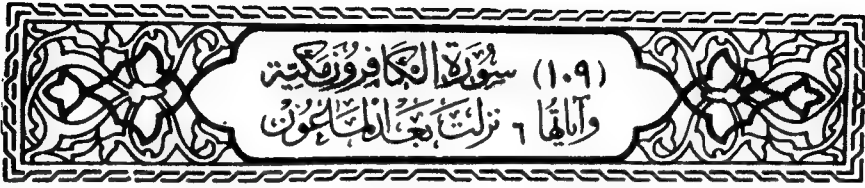 (١٠٩) سُورَةُ الْكَافِرُونَ مَكِّيَّةٌ
وَآيَاتُهَا ٦ نَزَلَتْ بَعْدَ الْمَاعُونِ